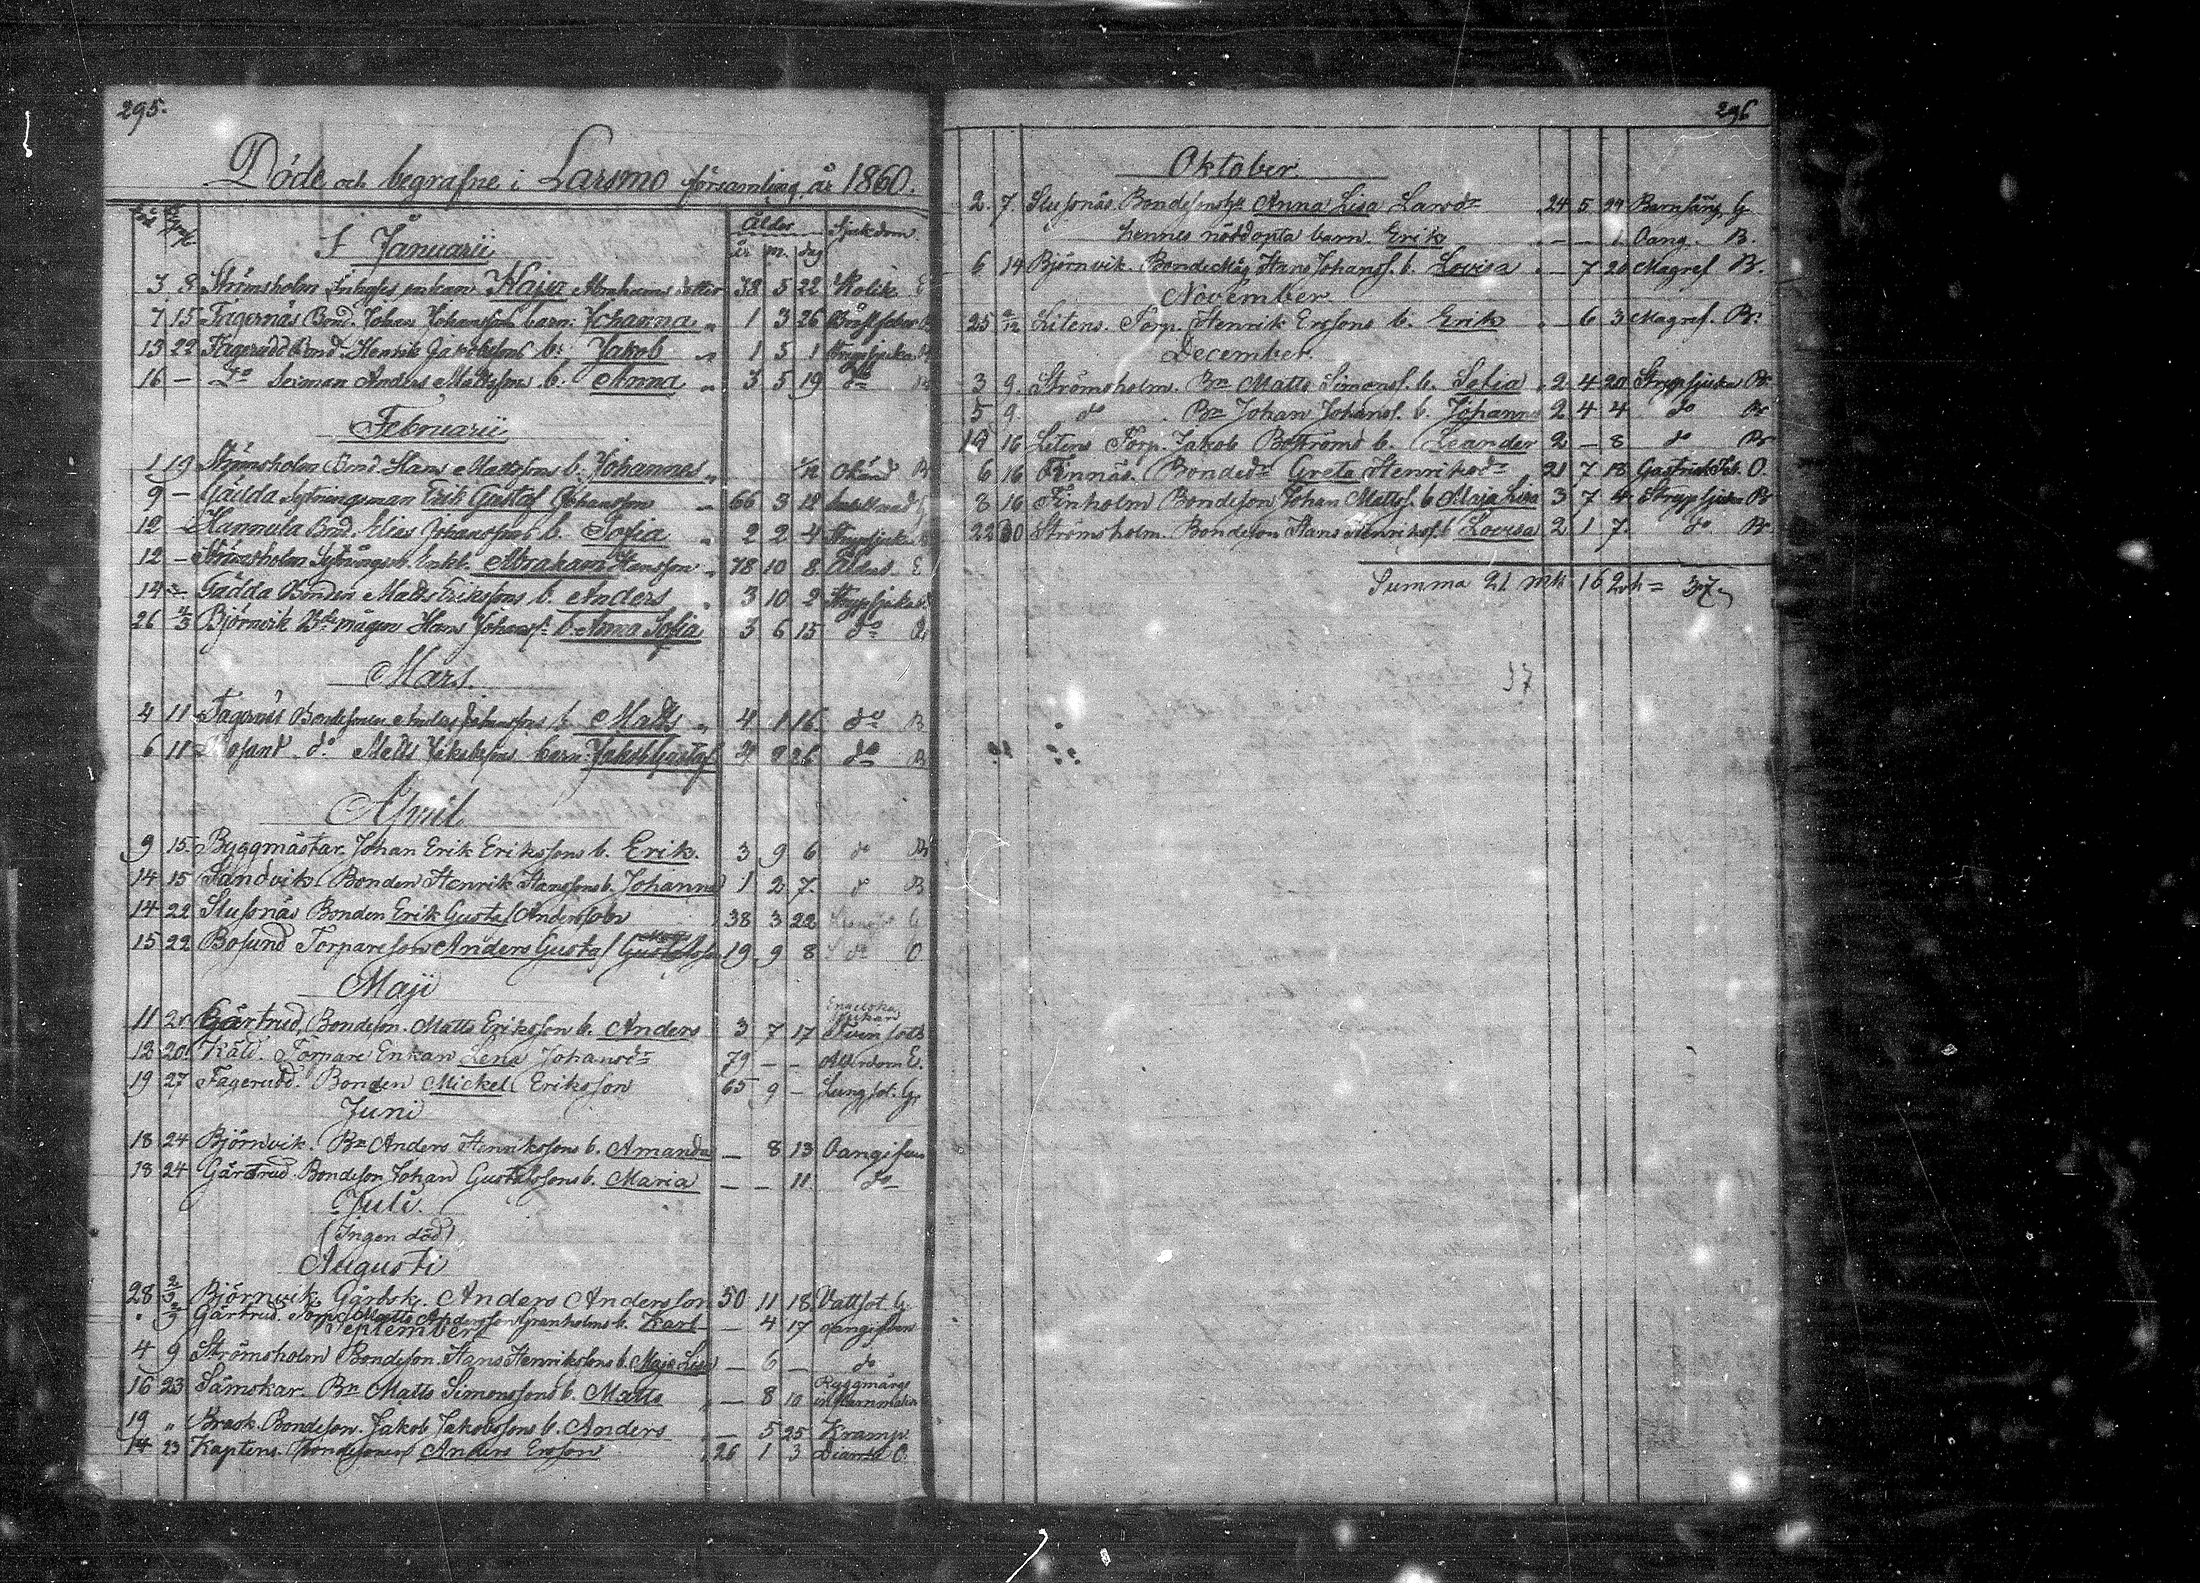 295.
Döde och begrafne i Larsmo församling, år 1860.
Ålder Sjukdom.
år m. dag
I Januarii
3 8 Strömsholm Enkan Kajsa Abrahams dotter 38 5 22 Kolik E
7 15 Fagernäs Bond. Johan Johanssons barn: Johanna 1 3 26 Bröstfeber B
13 22 Fagerudd Bond. Henrik Jakobssons b: Jakob 1 5 1 Strypsjuka B
16 – Do Anders Mattssons b. Anna 3 5 19 do B
Februarii
1 19 Strömsholm Bond. Hans Mattssons b: Johannes 1/12 Okänd B
9 – Gädda Sytningsman Erik Gustaf Johansson 66 3 12 G
12 – Hannula Bnd. Elias Johanssons b. Sofia 2 2 4 Strypsjuka B
12 – Strömsholm Sytningsb. Enkl. Abraham Hansson 78 10 8 Ålderd. E
14 Gädda Bonden Matts Erikssons b. Anders 3 10 2 Strypsjuka B
26 4/3 Björnvik Bde mågen Hans Johanss. b. Anna Sofia 3 6 15 do B
Mars.
4 11 Fagernäs Bondesonen Anders Johanssons b. Matts 4 1 16 do B
6 11 Bosund. do Matts Jakobssons barn: Jakob Gustaf 4 9 26 do B
April
9 15. Byggmästar. Johan Erik Erikssons b. Erik. 3 9 6 do B
14 15 Sandvik. Bonden Henrik Hanssons b. Johannes 1 2 7. do B
14 22 Slussnäs Bonden Erik Gustaf Andersson 38 3 22 G
15 22 Bosund Torpareson Anders Gustaf Gustafsson 19 9 8 do O
Maji
11 20 Gärtrud, Bondeson. Matts Eriksson b. Anders 3 7 17 Engelska sjukan B
12 20 Käld. Torpare Enkan Lena Johansdr 79 – – Ålderdom E.
19 27 Fagerudd. Bonden Mickel Eriksson 65 9 – Lungsot. G.
Juni
18 24 Björnvik. Bn Anders Henrikssons b. Amanda — 8 13 Oangifven
18 24 Gärtrud. Bondeson Johan Gustafssons b. Maria — — 11 do
Juli.
(Ingen död)
Augusti
28 2/9 Björnvik, Gårdsk. Anders Andersson 50 11 18 Vattsot G.
" 2/9 Gärtrud. Torp. Matts Andersson Granholms b. Karl — 4 17 oangifven
September
4 9 Strömsholm Bondeson. Hans Henrikssons b. Maja Lisa — 6 – do
16 23 Sämskar. Bn Matts Simonssons b. Matts — 8 10 Ryggmärgs inflammation
19 " Brask. Bondeson. Jakob Jakobssons b. Anders — 5 25 Kramp
14 23 Kaptens. Bondesonen Anders Ersson 26 1 3 Diarré O.
296
Oktober
2. 7. Slussnäs. Bondesonshu Anna Lisa Larsdr 24 5 29 Barnsäng G
hennes nöddöpta barn. Erik — — 1 Oang. B.
6 14 Björnvik. Bondemåg Hans Johanss. b. Lovisa — 7 20 Magref B.
November.
25 2/12 Litens. Torp. Henrik Erssons b. Erik 6 3 Magref. B.
December
3 9. Strömsholm. Bn Matts Simonss. b. Sofia 2 4 20 Strypsjuka B
5 9. do Bn Johan Johanss. b. Johannes 2 4 4 do B
10 16 Litens Torp. Jakob Boströms b. Leander 2 – 8 do B
6 16 Finnäs. Bondedr Greta Henriksdr 21 7 18 Gastrisk Feb. O.
8 16 Finholm Bondeson Johan Mattss. b. Maja Lisa 3 7 4 Strypsjukan B
22 30 Strömsholm. Bondeson Hans Henrikss. b. Lovisa 2 1 7. do B
Summa 21 mk 16 qvk = 37
37